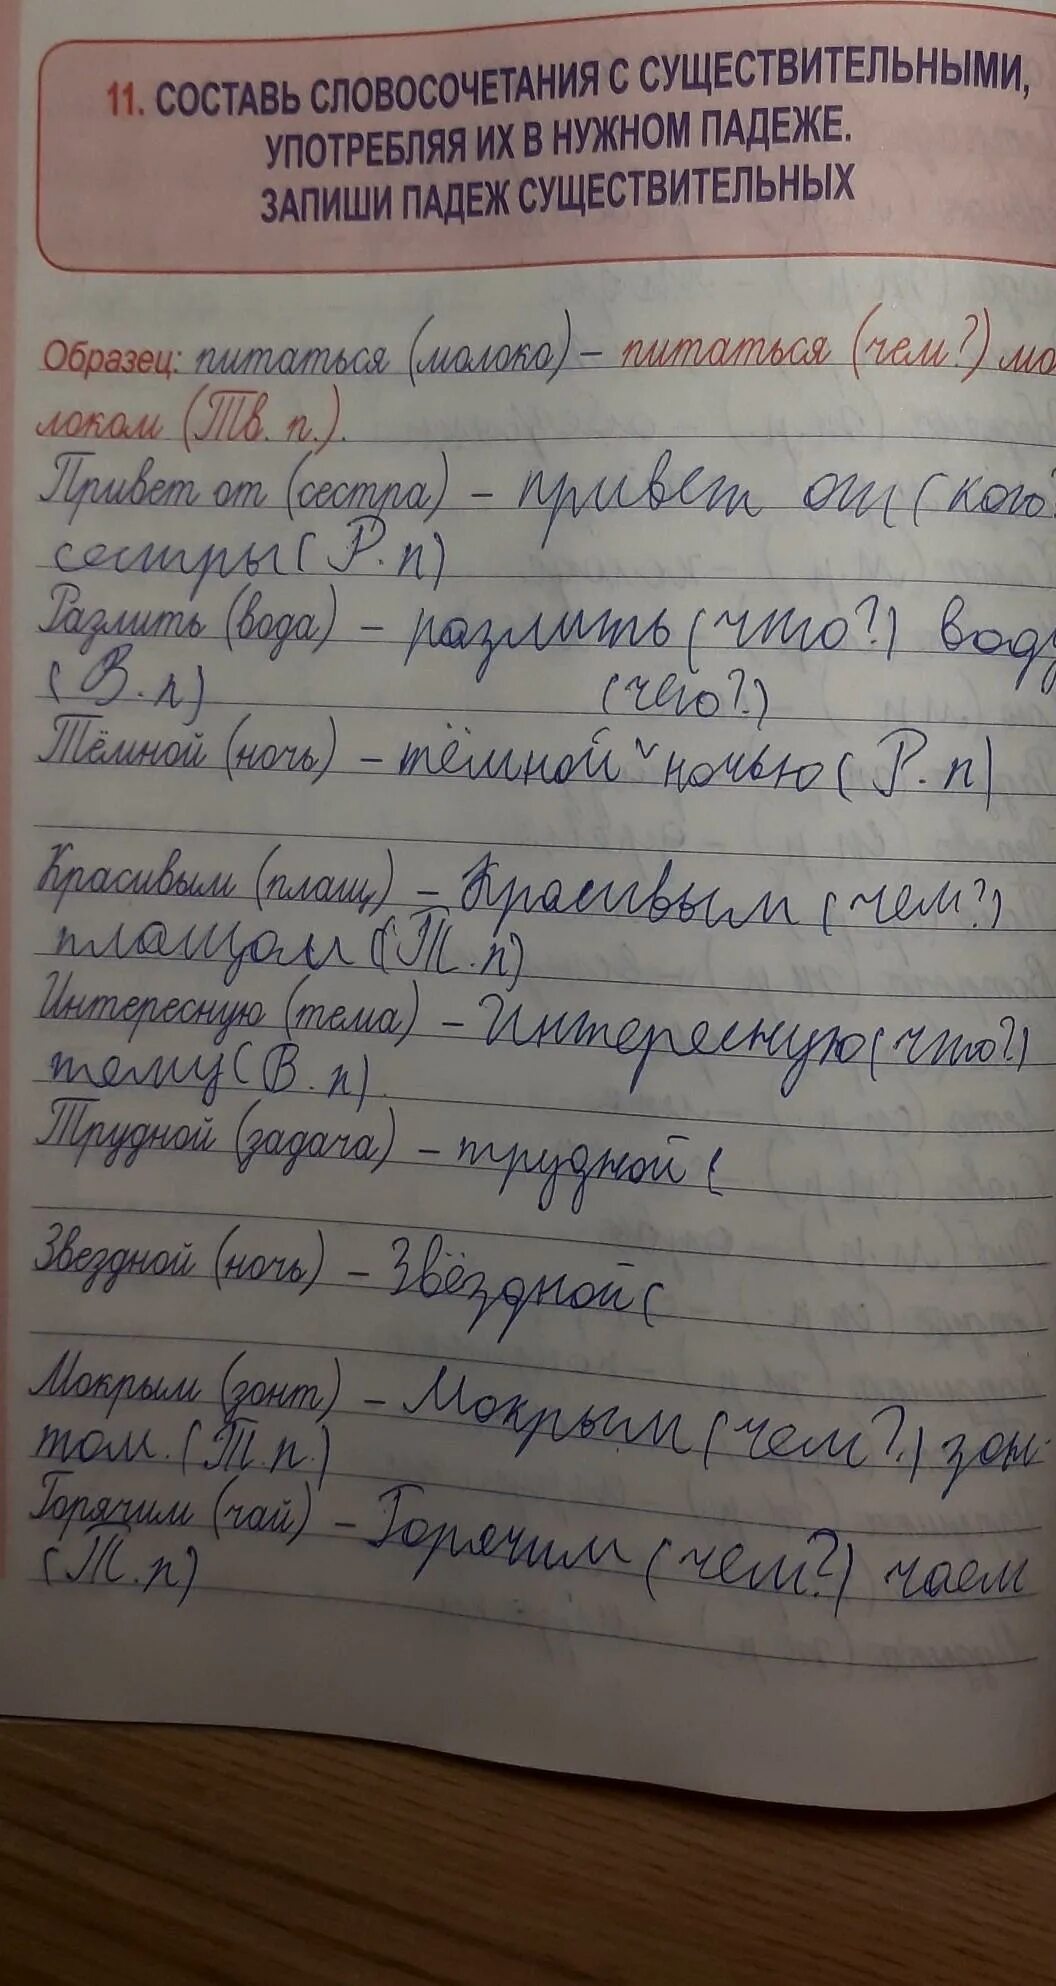 11. СОСТАВЬ СЛОВОСОЧЕТАНИЯ С СУЩЕСТВИТЕЛЬНЫМИ,
УПОТРЕБЛЯЯ ИХ В НУЖНОМ ПАДЕЖЕ.
ЗАПИШИ ПАДЕЖ СУЩЕСТВИТЕЛЬНЫХ
Образец: питаться (молоко) – питаться (чем?) мо
локом (Тв. п.).
Привет от (сестра) – привет от (кого?
сестры (Р.п)
Разлить (вода) – разлить (что?) воду
(В.п) (чего?)
Тёмной (ночь) – тёмной ˅ ночью (Р.п)
Красивым (плащ) – Красивым (чем?)
плащом (Т.п)
Интересную (тема) – Интересную (что?)
тему (В.п)
Трудной (задача) – трудной (
Звездной (ночь) – Звёздной (
Мокрым (зонт) – Мокрым (чем?) зон
том. (Т.п.)
Горячим (чай) – Горячим (чем?) чаем
(Т.п)